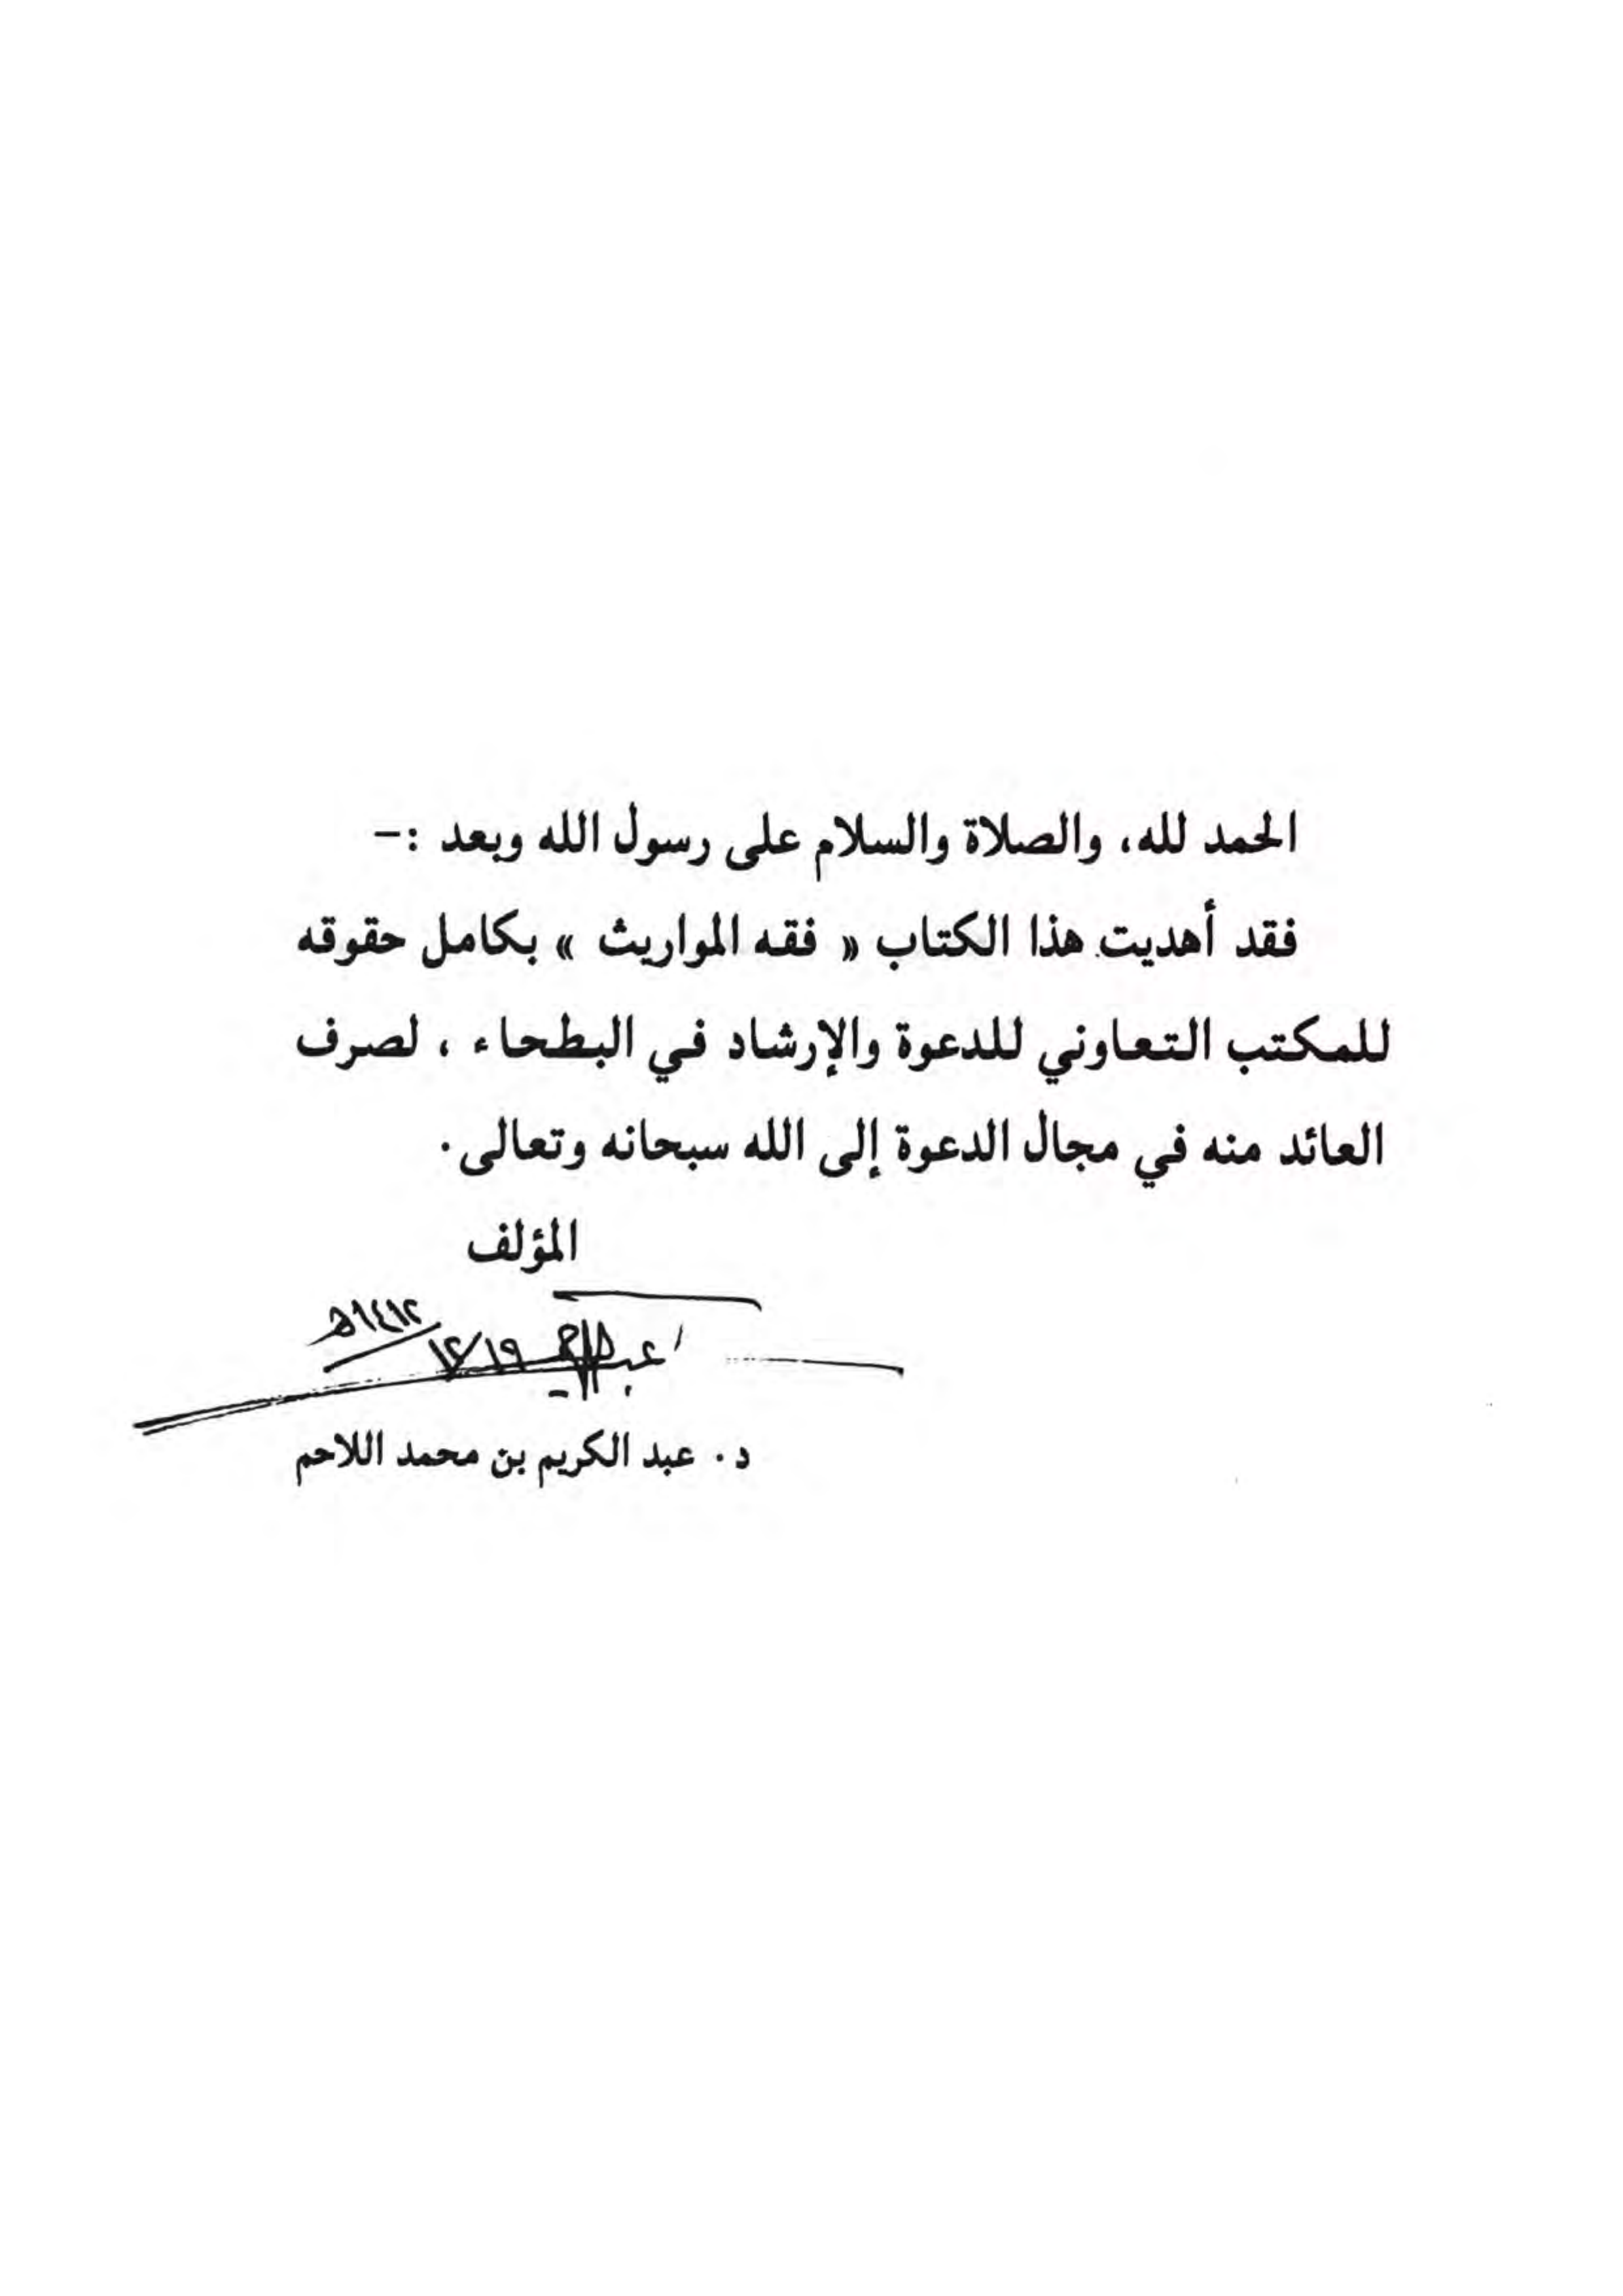 الحمد لله، والصلاة والسلام على رسول الله وبعد :-
فقد أهديت هذا الكتاب « فقه المواريث » بكامل حقوقه
للمكتب التعاوني للدعوة والإرشاد في البطحاء ، لصرف
العائد منه في مجال الدعوة إلى الله سبحانه وتعالى.
المؤلف
١٩/١٢/١٤١٢هـ
د. عبد الكريم بن محمد اللاحم